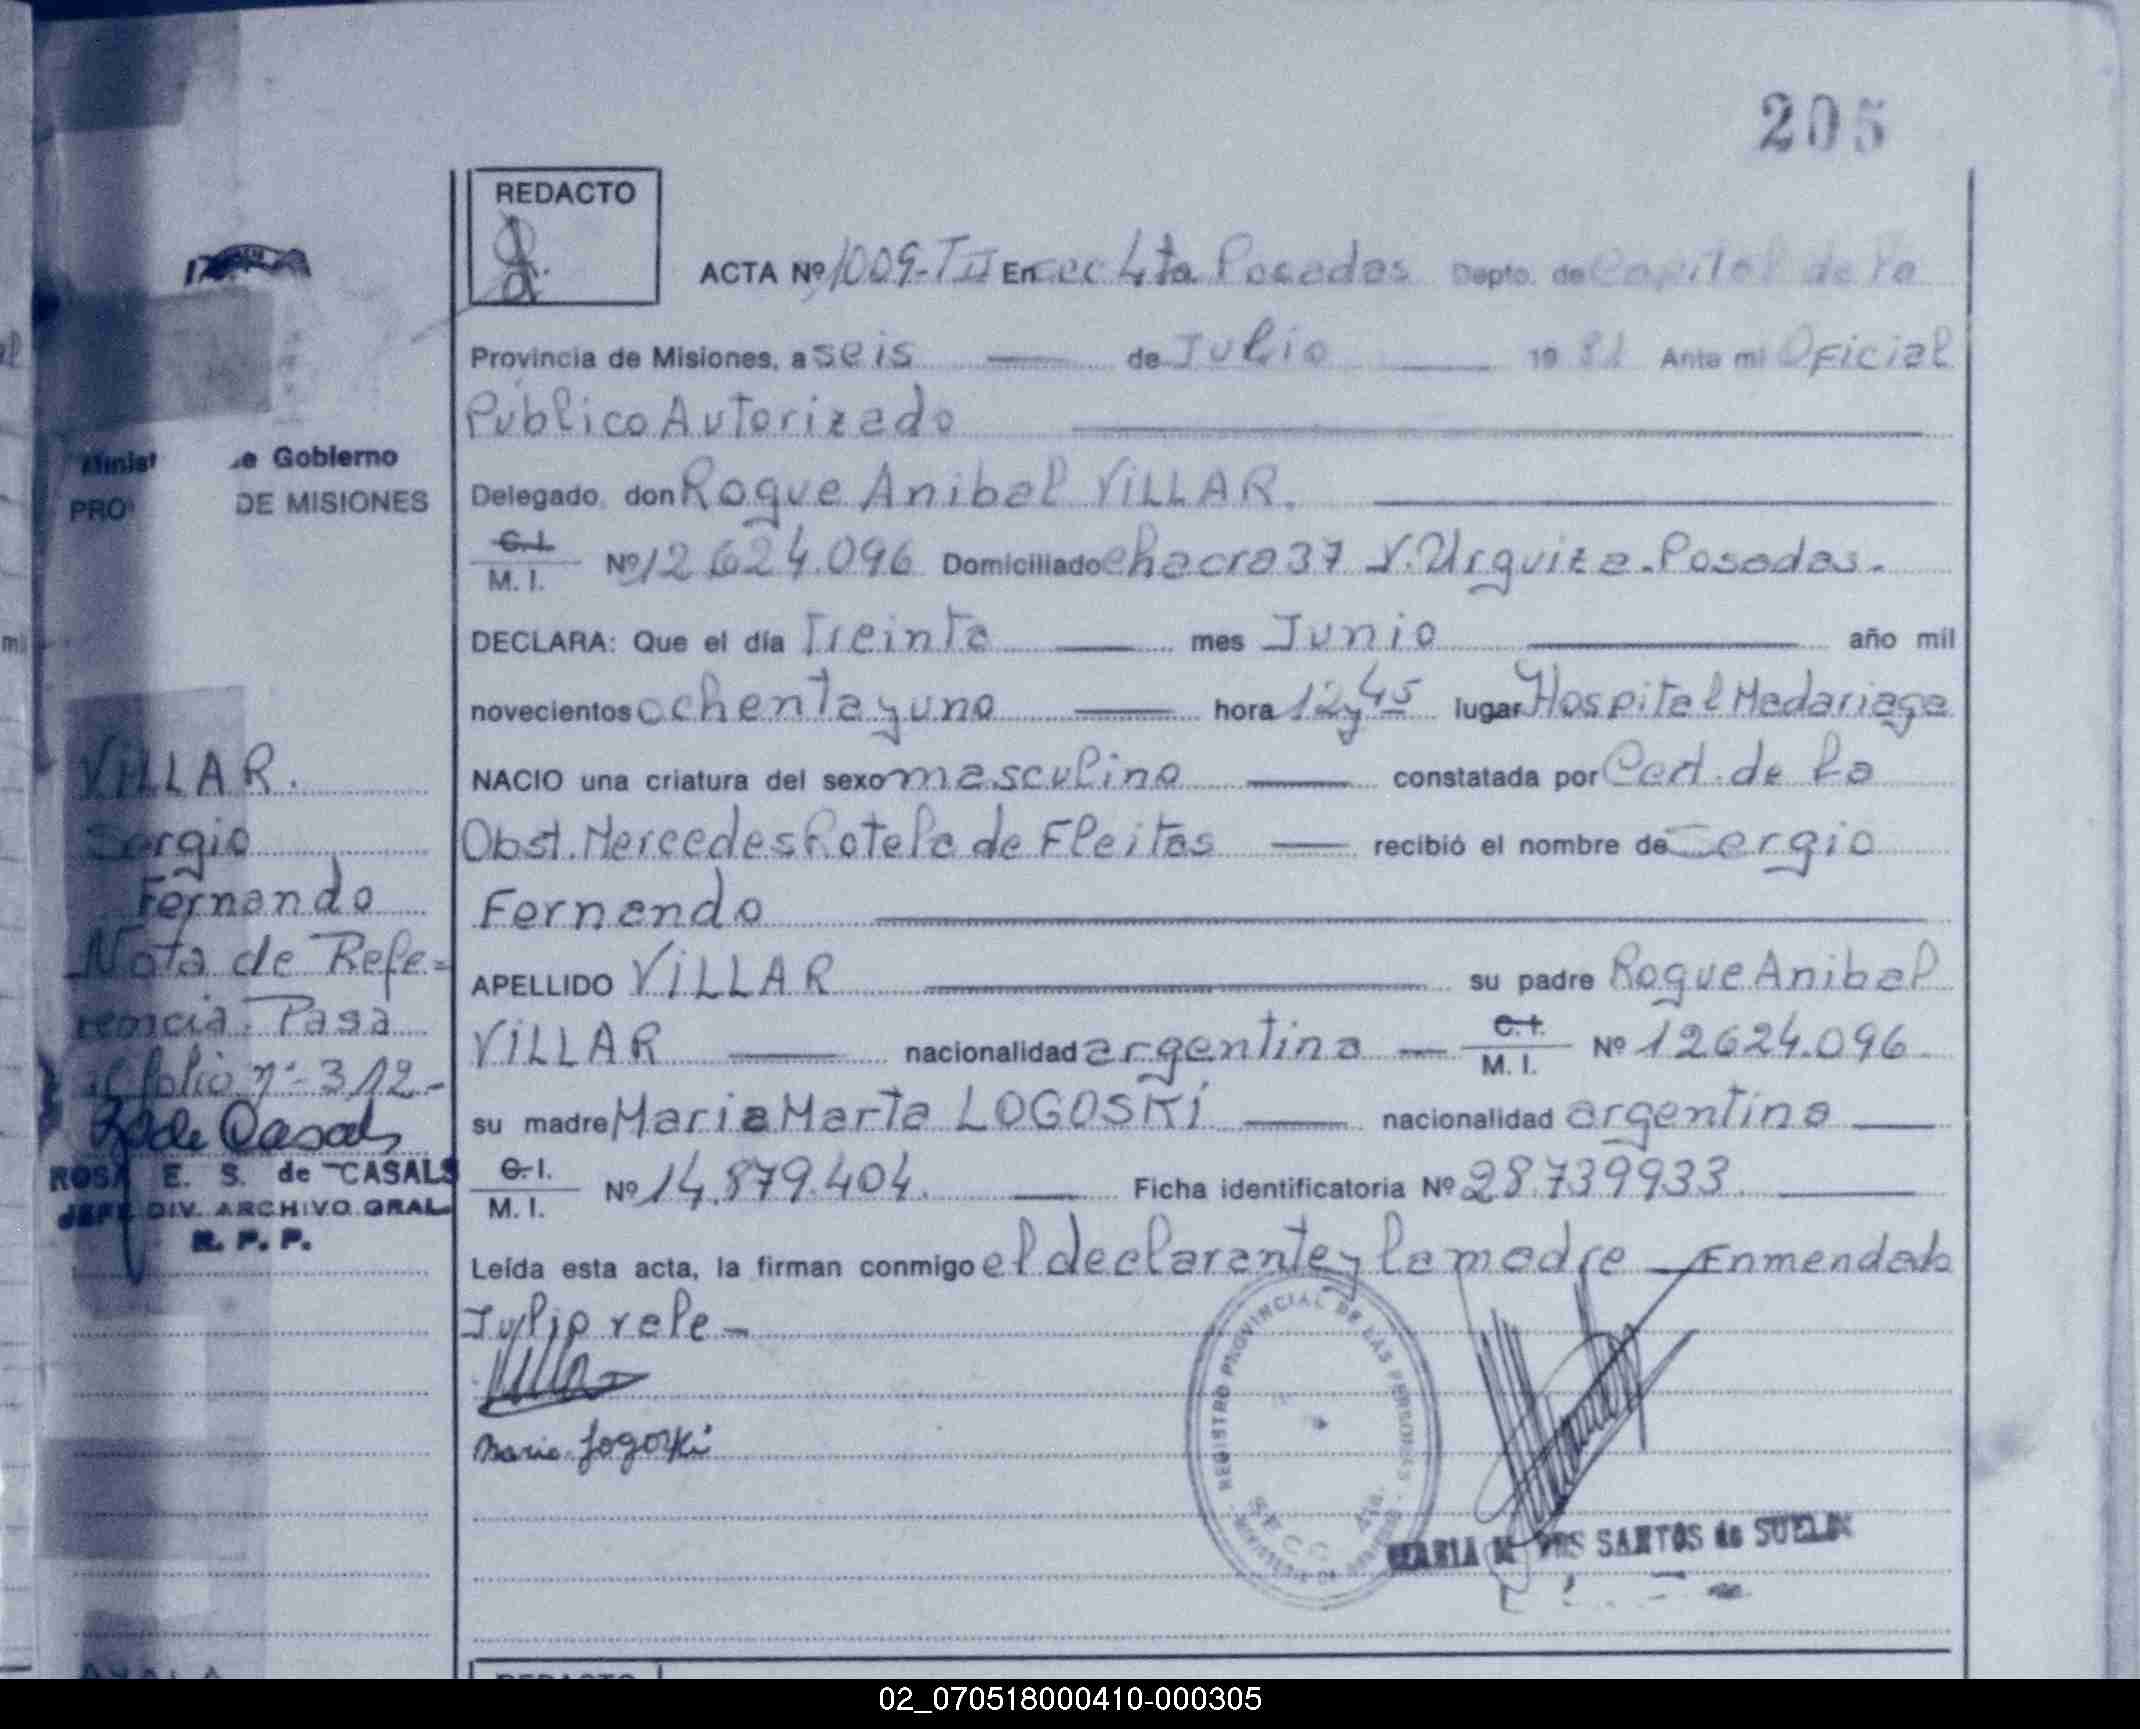 205
REDACTO
ACTA Nº 1009-TII En Secc 4ta Posadas Depto. de Capital de la
Provincia de Misiones, a seis de Julio 1981 Ante mi Oficial
Público Autorizado
Delegado, don Roque Anibal VILLAR.
C. I.
M. I. Nº 12624.096 Domiciliado chacra 37 V. Urquiza - Posadas.
DECLARA: Que el día Treinta mes Junio año mil
novecientos ochenta y uno hora 12 y 45 lugar Hospital Madariaga
NACIO una criatura del sexo masculino constatada por Cert. de la
Obst. Mercedes Rotela de Fleitas recibió el nombre de Sergio
Fernando
APELLIDO VILLAR su padre Roque Anibal
VILLAR nacionalidad argentina C. I.
M. I. Nº 12624.096
su madre Maria Marta LOGOSKI nacionalidad argentina
C. I.
M. I. Nº 14.879.404. Ficha identificatoria Nº 28.739933
Leída esta acta, la firman conmigo el declarante y la madre - Enmendado
Julio vale -
Maria Logoski
REGISTRO PROVINCIAL DE LAS PERSONAS
MARIA SANTOS de
de Gobierno
DE MISIONES
VILLAR.
Sergio
Fernando
Nota de Refe-
rencia: Pasa
folio nº 312-
R de Casals
ROSA E. S. de CASALS
JEFE DIV. ARCHIVO GRAL
R. P. P.
02_070518000410-000305